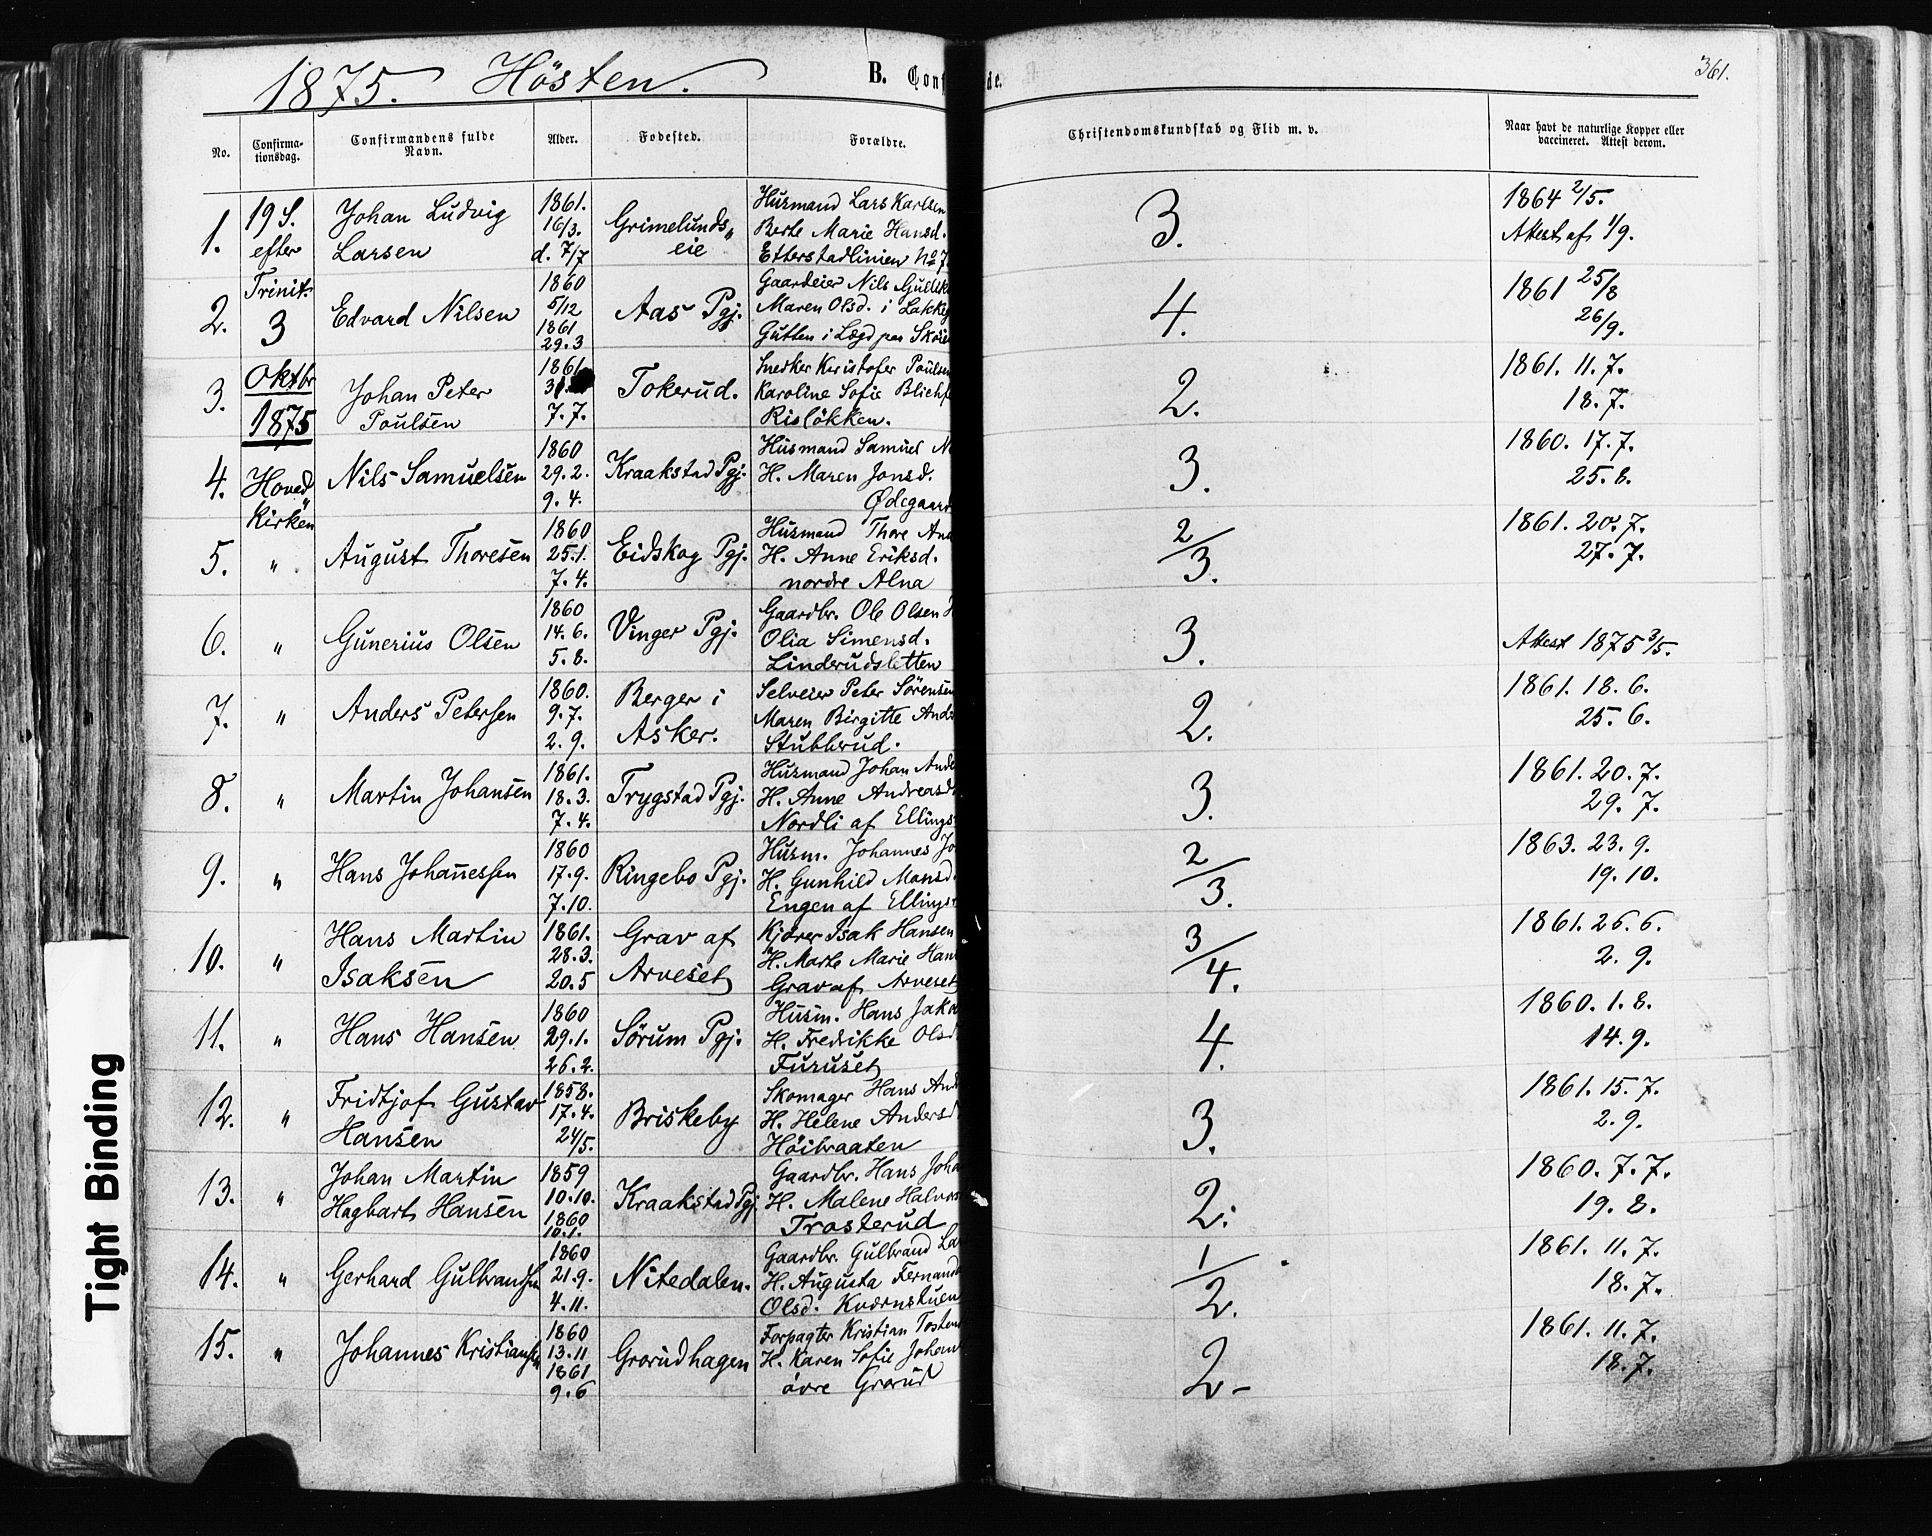 1875. Hösten.
B. Conf de.
361.
No.
Confirma-
tionsdag.
Confirmandens fulde
Navn.
Alder.
Fødested.
Forældre.
Christendomskundskab og Flid m. v.
Naar havt de naturlige Kopper eller
vaccineret. Attest derom.
1.
19 S.
efter
Trinit.
3
Oktbr
1875
Hoved
Kirken
Johan Ludvig
Larsen
1861.
16/3.
d. 7/7
Grimelunds„
eie
Husmand Lars Karlsen
Berte Marie Hansd.
Etterstadlinien No 7
3.
1864 2/5.
Attest af 1/9.
2.
Edvard Nilsen
1860
5/12
1861
29.3
Aas Pgj.
Gaardeier Nils
Maren Olsd. i
Gutten i Lægd paa
4.
1861 25/8
26/9.
3.
Johan Peter
Poulsen
1861
7.7.
Tokerud.
Snedker Kristofer Poulsen
Karoline Sofie
Risløkken.
2.
1861. 11. 7.
18. 7.
4.
Nils Samuelsen
1860
29.2.
9. 4.
Kraakstad Pgj.
Husmand Samuel N
H. Maren Jonsd.
Ødegaard
3.
1860. 17. 7.
25. 8.
5.
"
August Thoresen
1860
25.1.
7. 4.
Eidskog Pgj.
Husmand Thore
H. Anne Eriksd.
nordre Alna
2/3.
1861. 20. 7.
27. 7.
6.
"
Gunerius Olsen
1860
14. 6.
5. 8.
Vinger Pgj.
Gaardbr. Ole Olsen H
Olia Simensd.
Linderudsletten
3.
Attest 1875 3/5.
7.
"
Anders Petersen
1860.
9.7.
2. 9.
Berger i
Asker.
Selveier Peter Sörensen
Maren Birgitte Ands
Stubberud.
2.
1861. 18. 6.
25. 6.
8.
"
Martin Johansen
1861.
18.3.
7.4.
Trygstad Pgj.
Husmand Johan Ande
H. Anne Andreasd
Nordli af Ellings
3.
1861. 20. 7.
29. 7.
9.
"
Hans Johanessen
1860
17.9.
7.10.
Ringebo Pgj.
Husm. Johannes Jo
H. Gunhild Monsd.
Engen af Ellings
2/3.
1863. 23. 9.
19. 10.
10.
"
Hans Martin
Isaksen
1861.
28.3.
20.5
Grav af
Arveset
Kjører Isak Hansen
H. Marte Marie Han
Grav af Arveset
3/4.
1861. 26. 6.
2. 9.
11.
"
Hans Hansen
1860
29.1.
26.2.
Sörum Pgj.
Husm. Hans Jako
H. Fredrikke Olsd
Furuset
4.
1860. 1. 8.
14. 9.
12.
"
Fridtjof Gustav
Hansen
1858.
17.4.
24/5.
Briskeby
Skomager Hans And
H. Helene Andersd
Höibraaten
3.
1861. 15. 7.
2. 9.
13.
"
Johan Martin
Hagbart Hansen
1859
10.10.
1860
10.1.
Kraakstad Pgj
Gaardbr. Hans Joha
H. Malene Halvors
Trosterud
2.
1860. 7. 7.
19. 8.
14.
"
Gerhard Gulbrandsen
1860
21.9.
4.11.
Nitedalen.
Gaardbr. Gulbrand La
H. Augusta Fernand
Olsd. Kværnstuen
1/2.
1861. 11. 7.
18. 7.
15.
"
Johannes Kristiansen
1860
13.11
1861
9.6
Grorudhagen
Forpagter Kristian Tosten
H. Karen Sofie Johan
övre Grorud
2-
1861. 11. 7.
18. 7.
Tight Binding